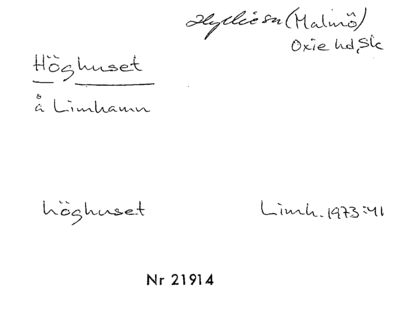 Hyllie sn (Malmö)
Oxie hd, Sk
Höghuset
å Limhamn
höghuset Limh. 1973:41
Nr 21914